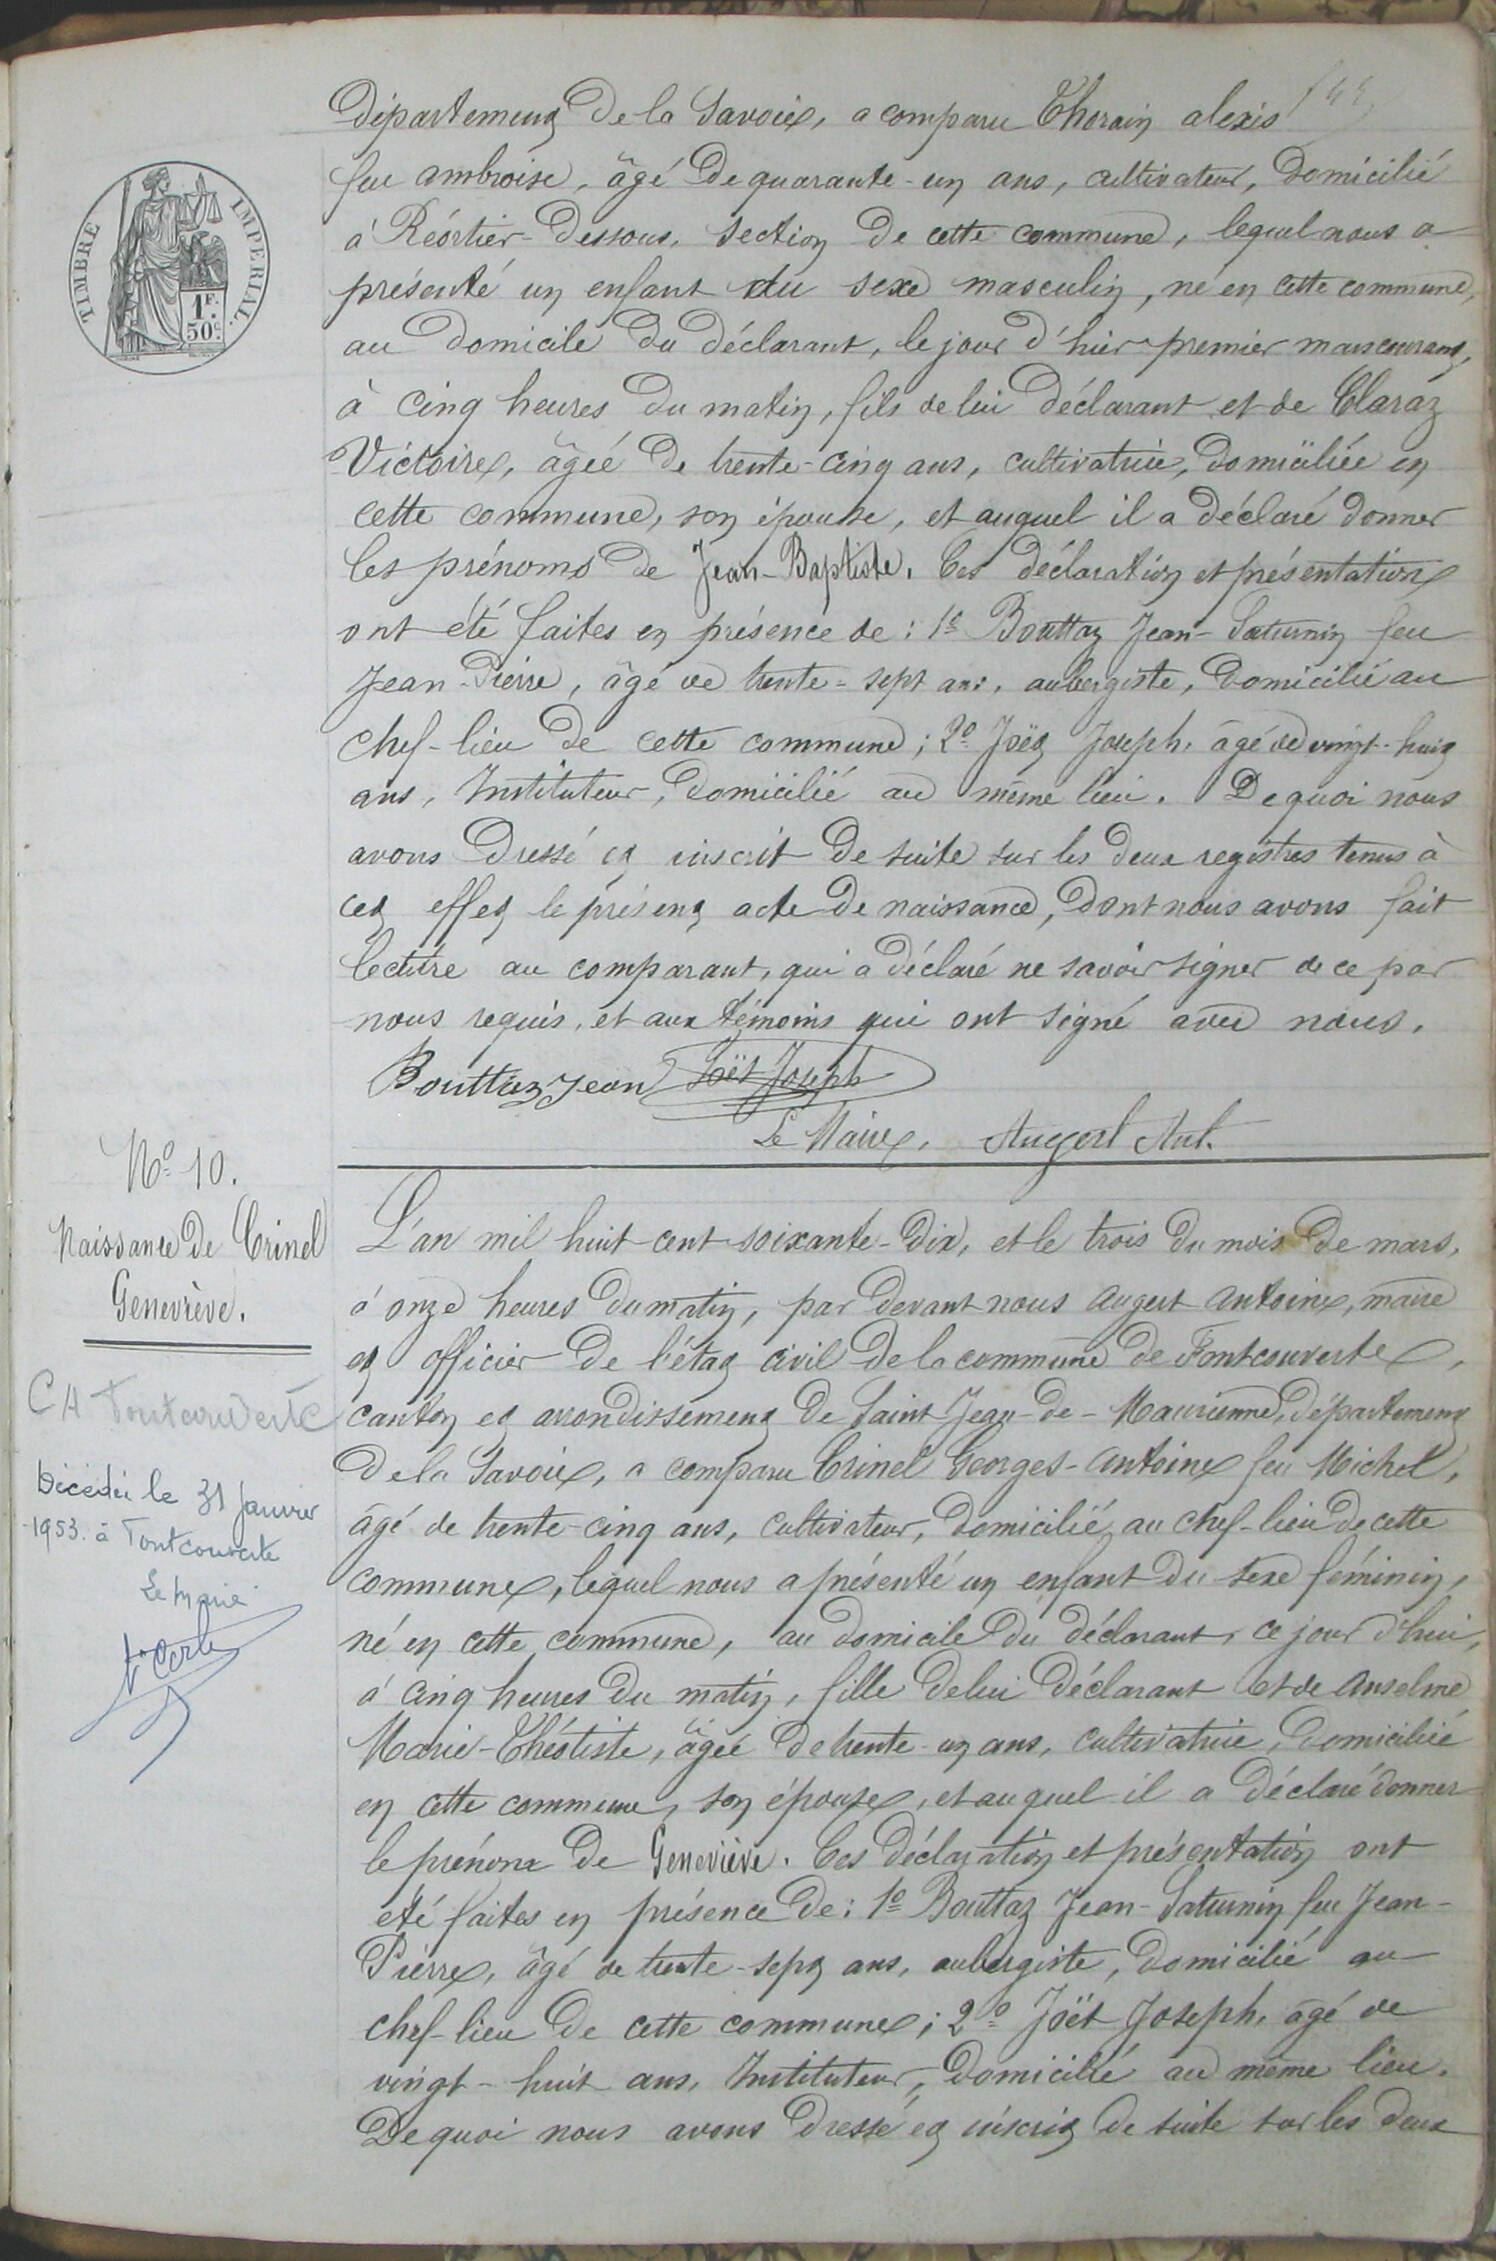 Département de la Savoie, a comparu Thorain alexis
feu ambroise, âgé de quarante-un ans, cultivateur, domicilié
à Réortier-dessous, section de cette commune, lequel nous a
présenté un enfant du sexe masculin, né en cette commune,
au domicile du déclarant, le jour d'hier premier mars courant,
à cinq heures du matin, fils de lui déclarant et de Claraz
Victoire, âgée de trente-cinq ans, cultivatrice, domiciliée en
cette commune, son épouse, et auquel il a déclaré donner
les prénoms de Jean-Baptiste. Ces déclaration et présentation
ont été faites en présence de : 1º Bouttaz Jean-Saturnin feu
Jean-Pierre, âgé de trente-sept ans, aubergiste, domicilié au
chef-lieu de cette commune ; 2º Joët Joseph, âgé de vingt-huit
ans, Instituteur, domicilié au même lieu. De quoi nous
avons dressé et inscrit de suite sur les deux registres tenus à
cet effet le présent acte de naissance, dont nous avons fait
lecture au comparant, qui a déclaré ne savoir signer de ce par
nous requis, et aux témoins qui ont signé avec nous.
Bouttaz Jean Joët Joseph
Le Maire, Augert Ant.
TIMBRE IMPERIAL.
1F.
50c.
Nº 10.
Naissance de Crinel
Geneviève.
CH Fontcouverte
Décédée le 31 janvier
1953. à Fontcouverte
Le Maire
L'an mil huit cent soixante-dix, et le trois du mois de mars,
à onze heures du matin, par devant nous Augert Antoine, maire
et officier de l'état civil de la commune de Fontcouverte,
canton et arrondissement de Saint-Jean-de-Maurienne, département
de la Savoie, a comparu Crinel Georges-Antoine feu Michel,
âgé de trente-cinq ans, cultivateur, domicilié au chef-lieu de cette
commune, lequel nous a présenté un enfant du sexe féminin,
né en cette commune, au domicile du déclarant, ce jour d'hui,
à cinq heures du matin, fille de lui déclarant et de Anselme
Marie-Théotiste, âgée de trente-un ans, cultivatrice, domiciliée
en cette commune, son épouse, et auquel il a déclaré donner
le prénom de Geneviève. Ces déclaration et présentation ont
été faites en présence de : 1º Bouttaz Jean-Saturnin feu Jean-
Pierre, âgé de trente-sept ans, aubergiste, domicilié au
chef-lieu de cette commune ; 2º Joët Joseph, âgé de
vingt-huit ans, Instituteur, domicilié au même lieu.
De quoi nous avons dressé et inscrit de suite sur les deux